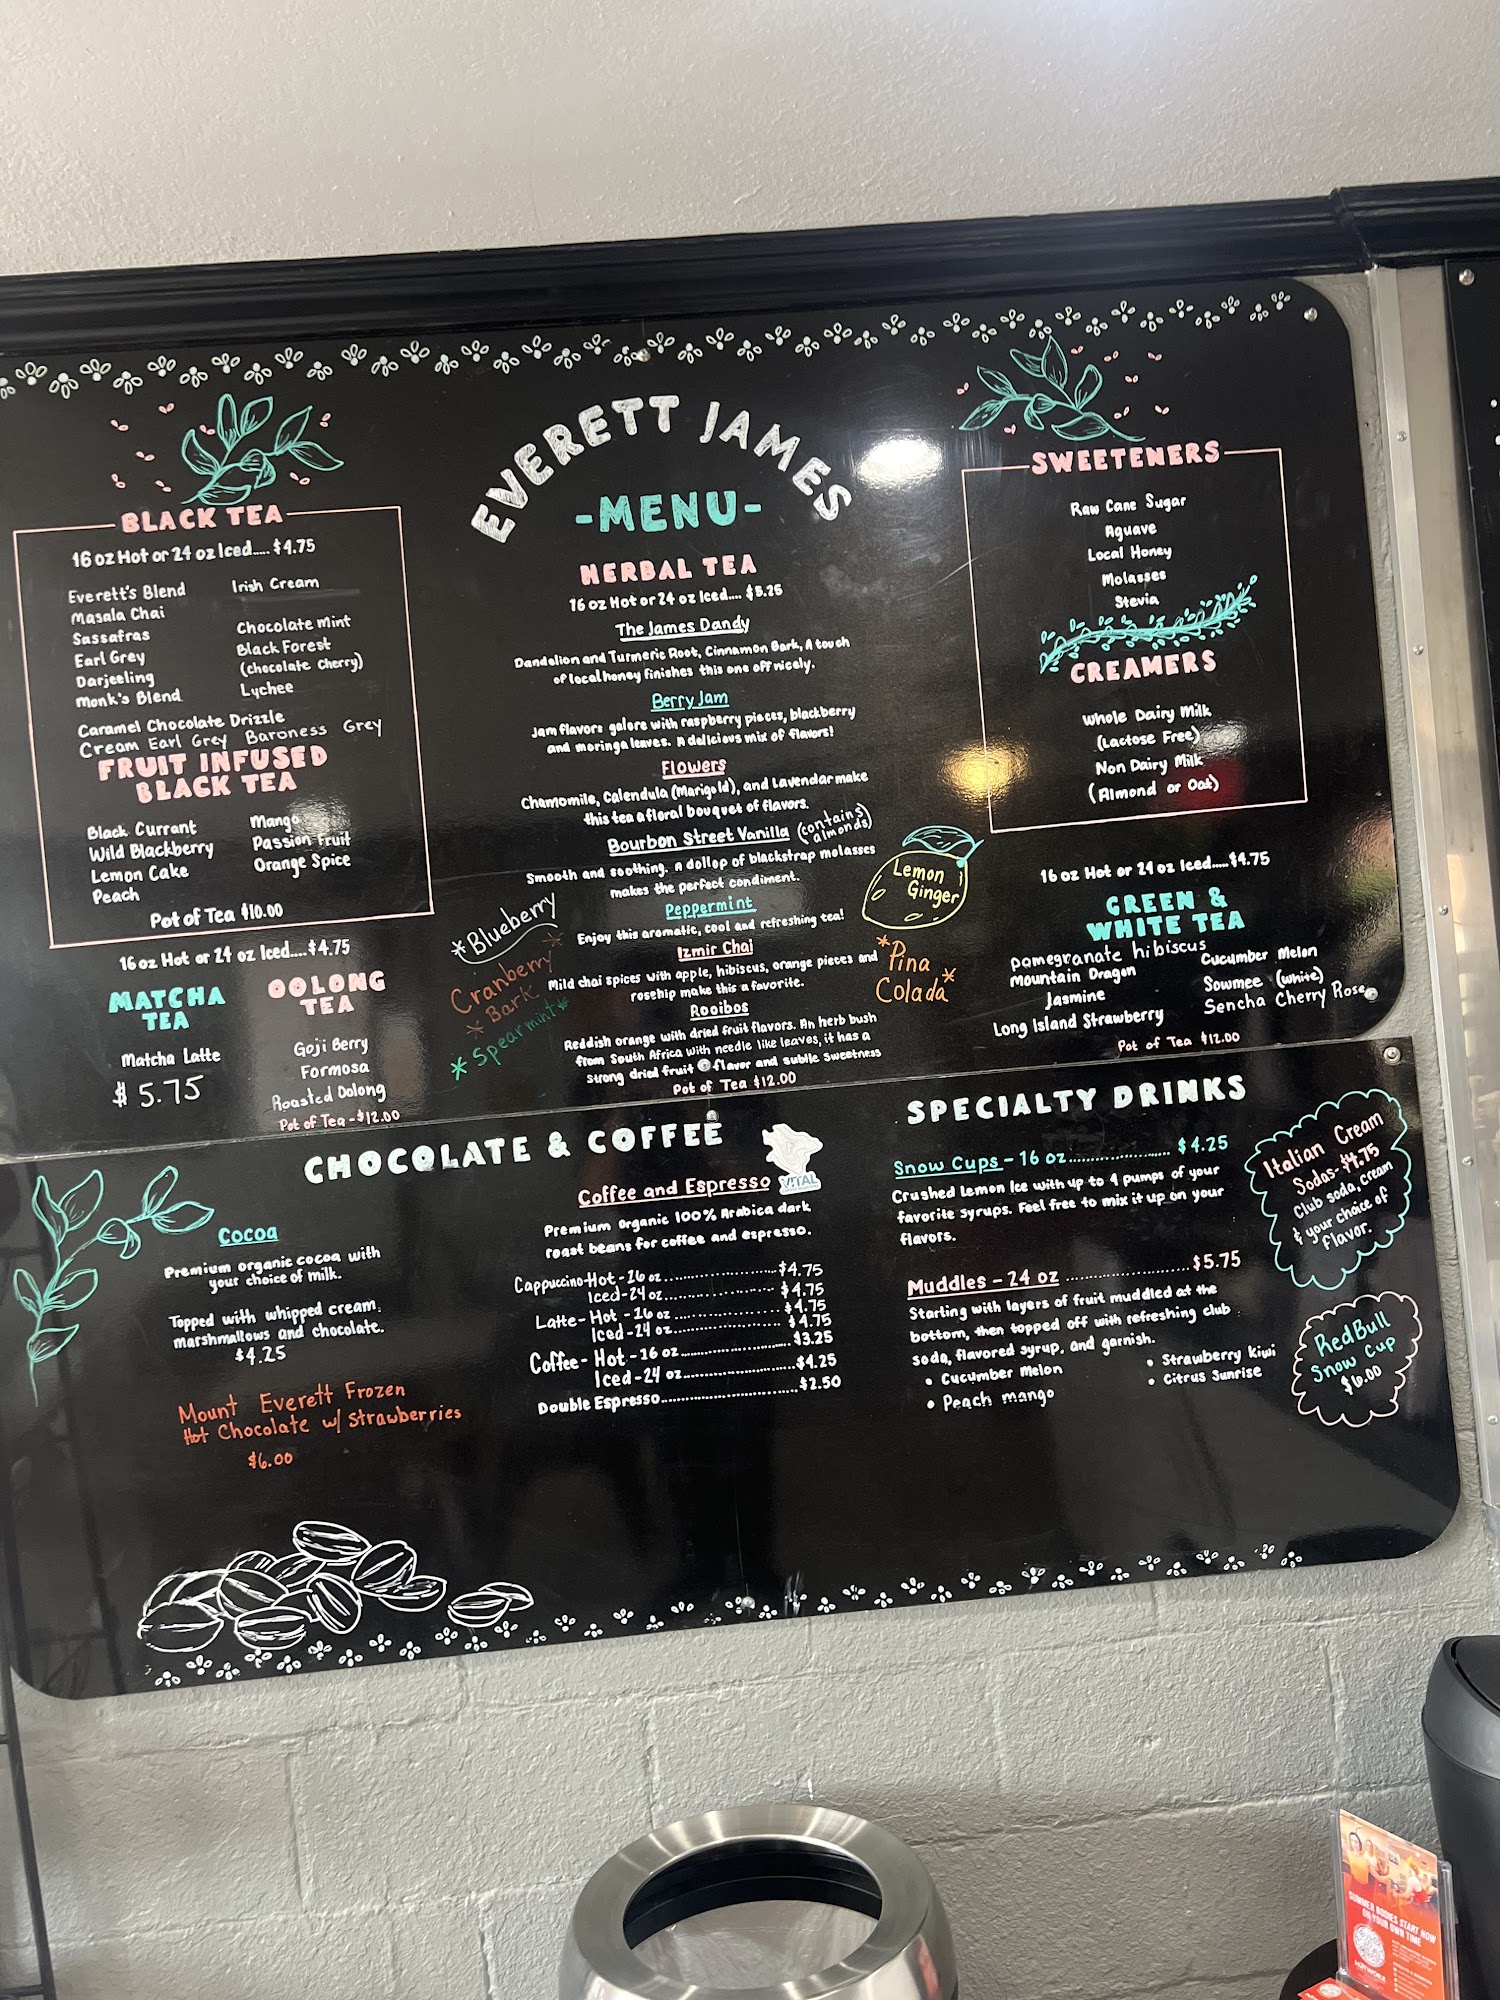 EVERETT JAMES
-MENU-
BLACK TEA
16 oz Hot or 24 oz Iced..... $4.75
Everett's Blend
Masala Chai
Sassafras
Earl Grey
Darjeeling
Monk's Blend
Irish Cream
Chocolate Mint
Black Forest
(chocolate cherry)
Lychee
Caramel Chocolate Drizzle
Cream Earl Grey Baroness Grey
FRUIT INFUSED
BLACK TEA
Black Currant
Wild Blackberry
Lemon Cake
Peach
Mango
Passion Fruit
Orange Spice
Pot of Tea $10.00
16 oz Hot or 24 oz Iced.....$4.75
MATCHA
TEA
Matcha Latte
$ 5.75
OOLONG
TEA
Goji Berry
Formosa
Roasted Oolong
Pot of Tea -$12.00
HERBAL TEA
16 oz Hot or 24 oz Iced.... $5.25
The James Dandy
Dandelion and Turmeric Root, Cinnamon Bark, A touch
of local honey finishes this one off nicely.
Berry Jam
Jam flavors galore with raspberry pieces, blackberry
and moringa leaves. A delicious mix of flavors!
Flowers
Chamomile, Calendula (Marigold), and Lavendar make
this tea a floral bouquet of flavors.
Bourbon Street Vanilla (contains
almonds)
Smooth and soothing. A dollop of blackstrap molasses
makes the perfect condiment.
Peppermint
Enjoy this aromatic, cool and refreshing tea!
Izmir Chai
Mild chai spices with apple, hibiscus, orange pieces and
rosehip make this a favorite.
Rooibos
Reddish orange with dried fruit flavors. An herb bush
from South Africa with needle like leaves, it has a
strong dried fruit flavor and subtle sweetness
Pot of Tea $12.00
*Blueberry
Cranberry *
* Bark
* Spearmint *
Lemon
Ginger
*Pina
Colada *
SWEETENERS
Raw Cane Sugar
Aguave
Local Honey
Molasses
Stevia
CREAMERS
Whole Dairy Milk
(Lactose Free)
Non Dairy Milk
(Almond or Oat)
16 oz Hot or 24 oz Iced.....$4.75
GREEN &
WHITE TEA
pomegranate hibiscus
Mountain Dragon
Jasmine
Long Island Strawberry
Cucumber Melon
Sowmee (white)
Sencha Cherry Rose
Pot of Tea $12.00
CHOCOLATE & COFFEE
Cocoa
Premium organic cocoa with
your choice of milk.
Topped with whipped cream,
marshmallows and chocolate.
$4.25
Mount Everett Frozen
Hot Chocolate w/ strawberries
$6.00
Coffee and Espresso
VITAL
Premium organic 100% Arabica dark
roast beans for coffee and espresso.
Cappuccino-Hot-16 oz..........$4.75
Iced-24 oz..........$4.75
Latte-Hot-16 oz..........$4.75
Iced-24 oz..........$4.75
Coffee-Hot-16 oz..........$3.25
Iced-24 oz..........$4.25
Double Espresso..........$2.50
SPECIALTY DRINKS
Snow Cups-16 oz.......... $4.25
Crushed Lemon Ice with up to 4 pumps of your
favorite syrups. Feel free to mix it up on your
flavors.
Muddles-24 oz ..........$5.75
Starting with layers of fruit muddled at the
bottom, then topped off with refreshing club
soda, flavored syrup, and garnish.
• Cucumber Melon
• Peach mango
• Strawberry Kiwi
• Citrus Sunrise
Italian Cream
Sodas-$4.75
Club soda, cream
& your choice of
flavor.
RedBull
Snow Cup
$6.00
SUMMER BODIES START NOW
ON YOUR OWN TIME
HOTWORX